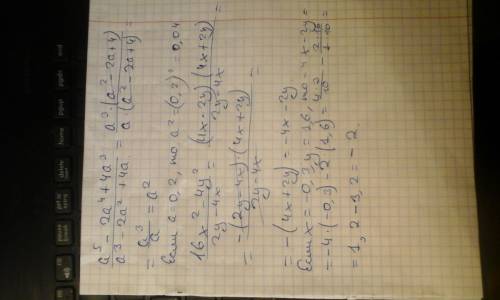 a⁵ − 2a⁴ + 4a³ / a³ − 2a² + 4a = a³·(a² − 2a + 4) / a(a² − 2a + 4) =
= a³/a = a²
Если a = 0,2, то a² = (0,2)² = 0,04
16x² − 4y² / 2y − 4x = (4x − 2y)(4x + 2y) / 2y − 4x =
= −(2y − 4x)·(4x + 2y) / 2y − 4x =
= −(4x + 2y) = −4x − 2y
Если x = −0,3, y = 1,6, то −4x − 2y =
= −4·(−0,3) − 2(1,6) =
= 1,2 − 3,2 = −2.
home
end
insert
delete